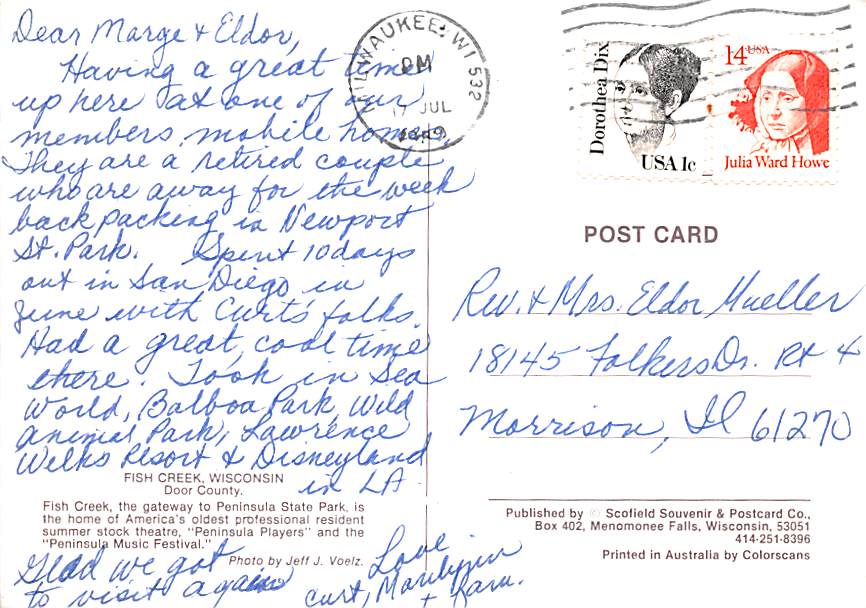 Dear Marge & Eldor,
Having a great time
up here at one of our
members mobile homes.
They are a retired couple
who are away for the week
backpacking in Newport
St. Park. Spent 10 days
out in San Diego in
June with Curt's folks.
Had a great, cool time
there. Took in Sea
World, Balboa Park, Wild
Animal Park, Lawrence
Welks Resort & Disneyland
in LA
FISH CREEK, WISCONSIN
Door County.
Fish Creek, the gateway to Peninsula State Park, is
the home of America's oldest professional resident
summer stock theatre, "Peninsula Players" and the
"Peninsula Music Festival."
Photo by Jeff J. Voelz.
Glad we got
to visit again
Love
Curt, Marilynn
& fam.
MILWAUKEE, WI 532
PM
17 JUL
Dorothea Dix
USA 1c
14 USA
Julia Ward Howe
POST CARD
Rev. & Mrs. Eldor Mueller
18145 Folkers Dr. Rt 4
Morrison, Il 61270
Published by © Scofield Souvenir & Postcard Co.,
Box 402, Menomonee Falls, Wisconsin, 53051
414-251-8396
Printed in Australia by Colorscans